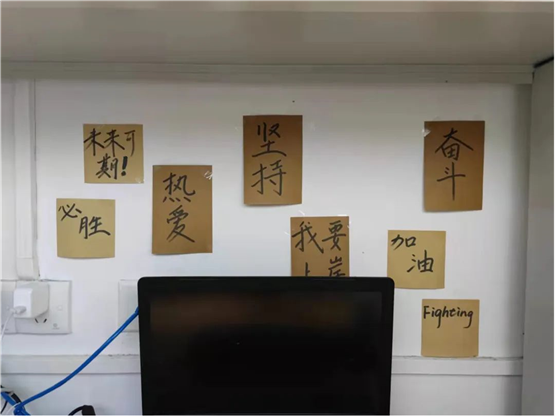 未来可
期!
必
胜
热
爱
坚
持
我要
上岸
加
油
奋
斗
Fighting